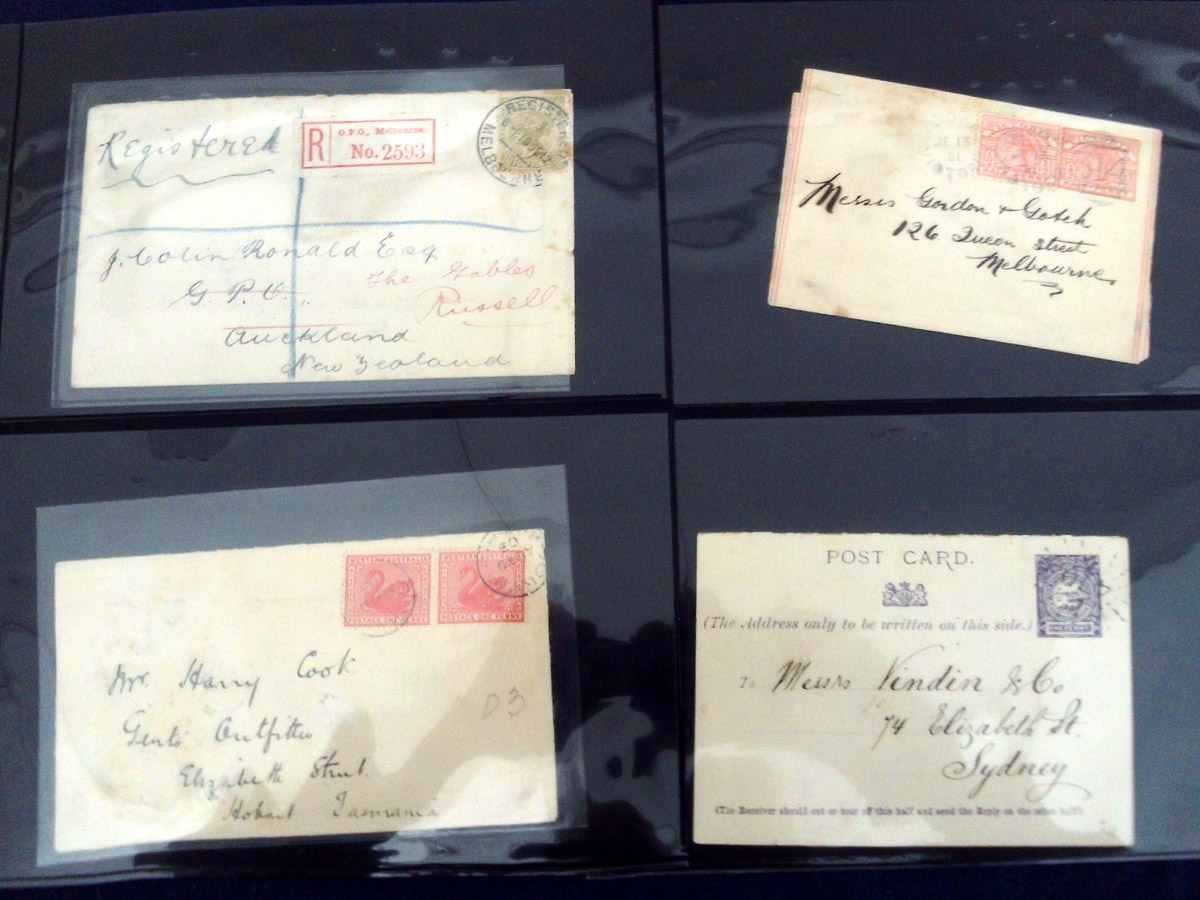 Registered
R
G.P.O., Melbourne.
No. 2593
REGISTERED
MELBOURNE
J. Colin Ronald Esq
G. P. O.
The Gables
Russell
Auckland
New Zealand
Messrs Gordon & Gotch
126 Queen Street
Melbourne
WESTERN AUSTRALIA
POSTAGE ONE PENNY
WESTERN AUSTRALIA
POSTAGE ONE PENNY
Mr. Harry Cook
Gents Outfitter
Elizabeth Street
Hobart Tasmania
D3
POST CARD.
(The Address only to be written on this side.)
ONE PENNY
To Messrs Vindin & Co
74 Elizabeth St.
Sydney
(The Receiver should cut or tear off this half and send the Reply on the other half)